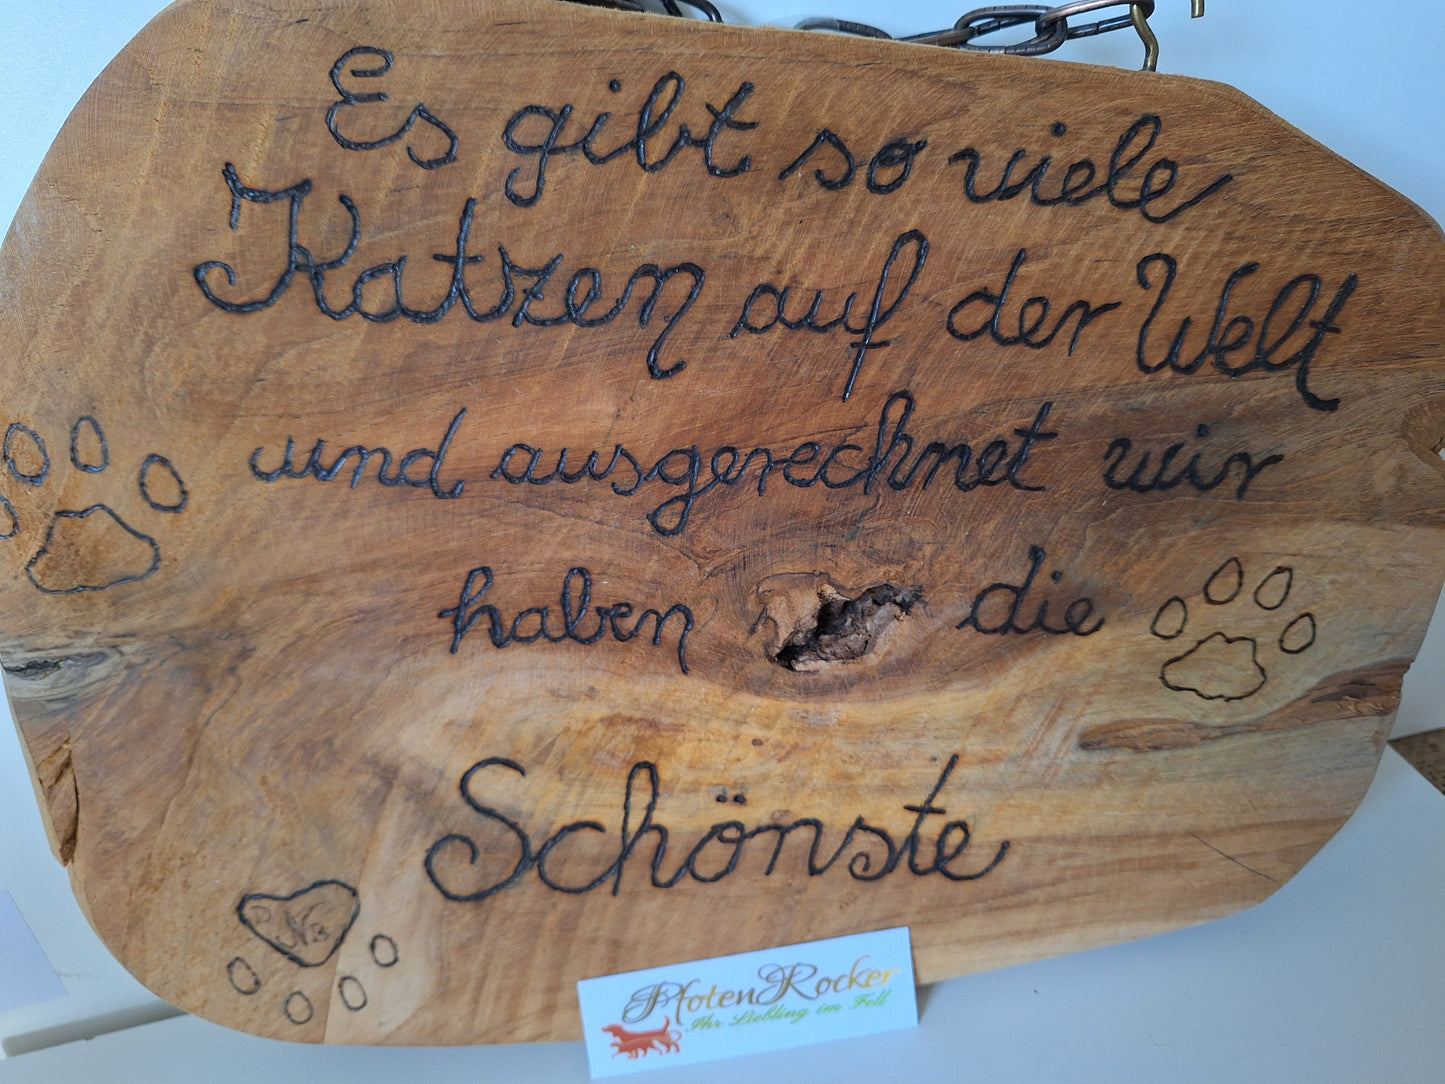 Es gibt so viele
Katzen auf der Welt
und ausgerechnet wir
haben die
Schönste
PfotenRocker
Ihr Liebling im Fell